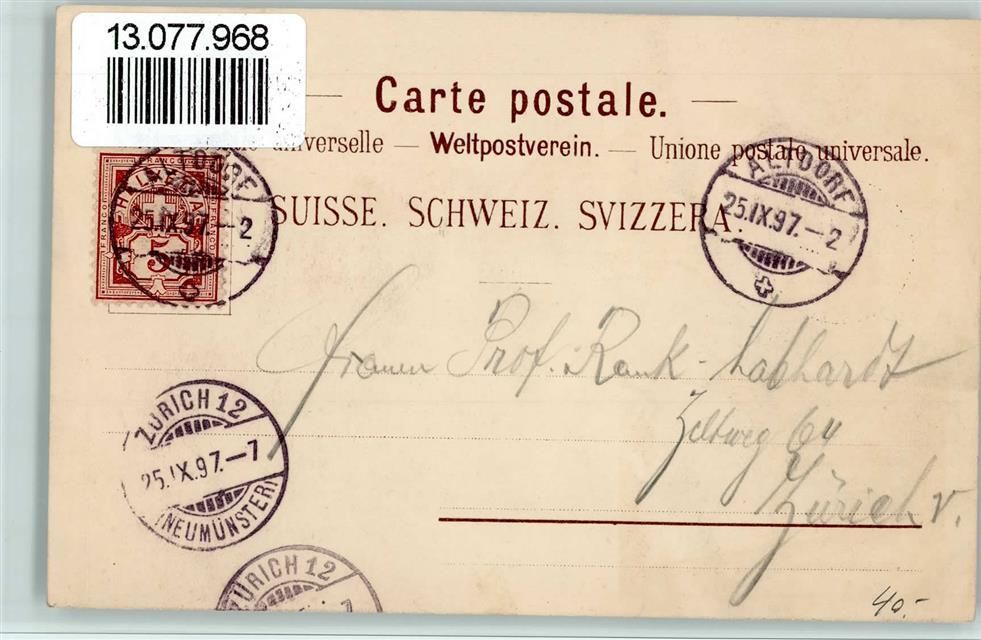 13.077.968
Carte postale.
universelle — Weltpostverein. — Unione postale universale.
SUISSE. SCHWEIZ. SVIZZERA.
FRANCO
HELVETIA
5
ALTDORF
25.IX.97.–2
ALTDORF
25.IX.97.–2
Prof. Rank-Labhardt
Zeltweg 64
Zürich V.
ZÜRICH 12
25.IX.97.–7
(NEUMÜNSTER)
ZÜRICH 12
40.-